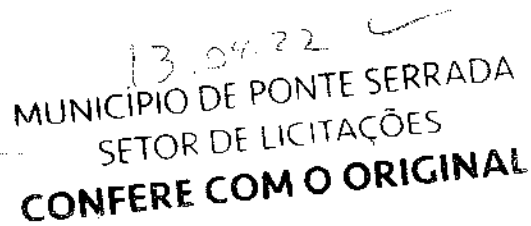 13.04.22
MUNICÍPIO DE PONTE SERRADA
SETOR DE LICITAÇÕES
CONFERE COM O ORIGINAL